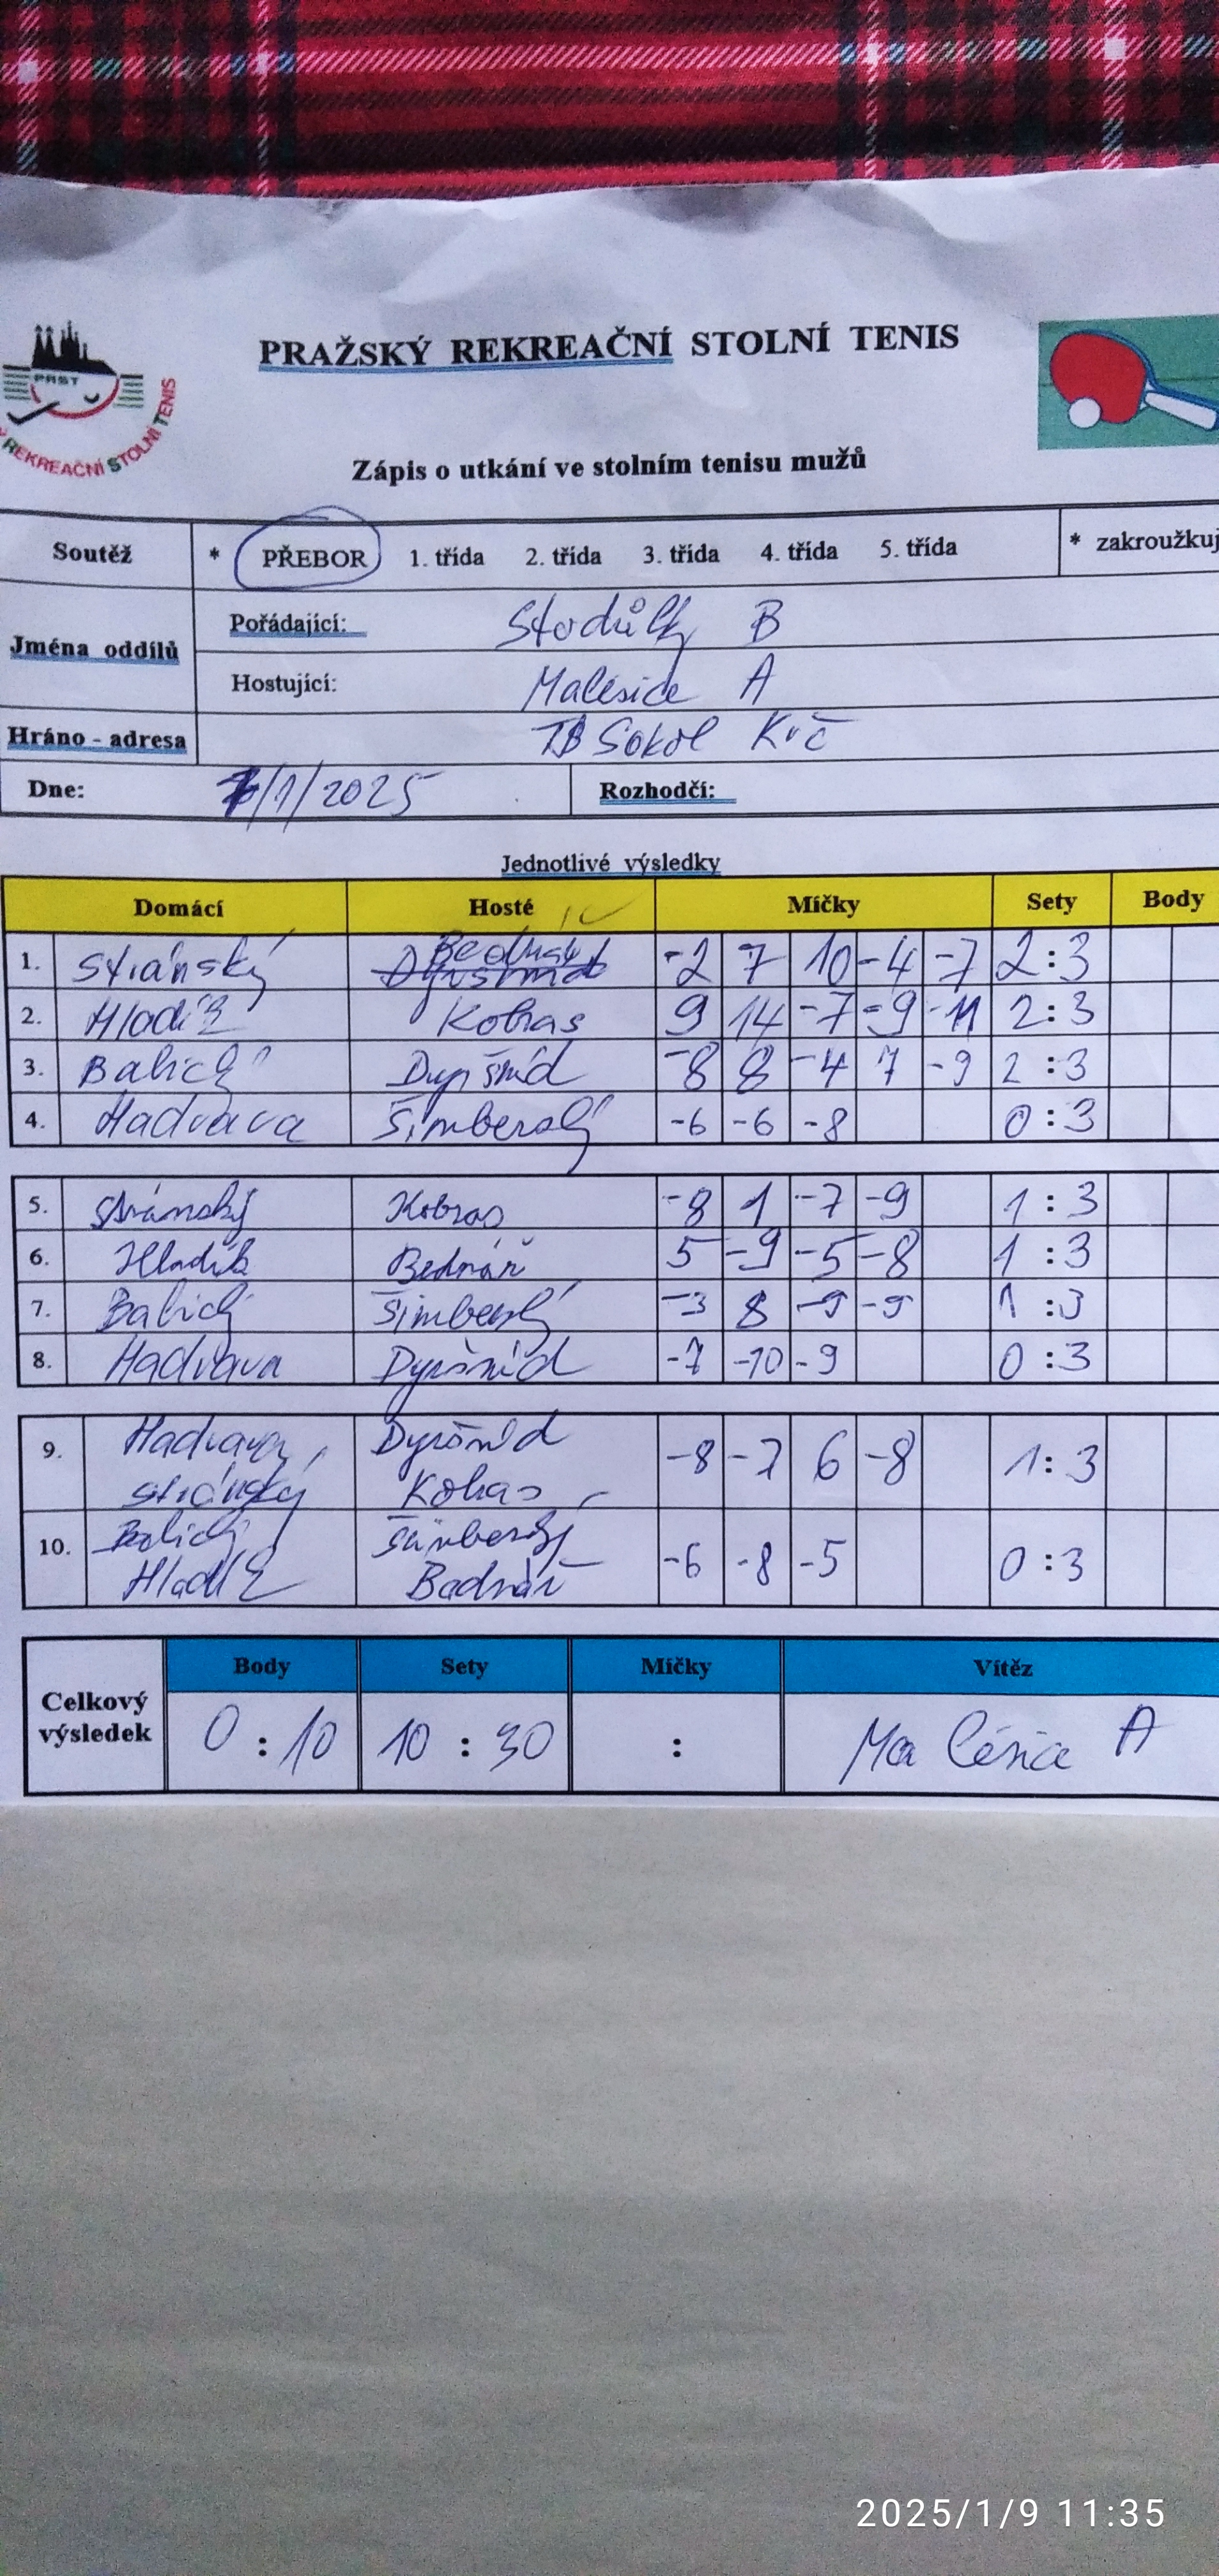 PRAŽSKÝ REKREAČNÍ STOLNÍ TENIS
PRST
REKREAČNÍ STOLNÍ TENIS
Zápis o utkání ve stolním tenisu mužů
Soutěž * PŘEBOR 1. třída 2. třída 3. třída 4. třída 5. třída * zakroužkuj
Jména oddílů
Pořádající: Stodůlky B
Hostující: Malešice A
Hráno - adresa TJ Sokol Krč
Dne: 7/1/2025 Rozhodčí:
Jednotlivé výsledky
Domácí Hosté Míčky Sety Body
1. Stránský Bednář -2 7 10 -4 -7 2:3
2. Hladík Kobras 9 14 -7 -9 -11 2:3
3. Balický Dyršmíd -8 8 -4 7 -9 2:3
4. Hadrava Šimberský -6 -6 -8 0:3
5. Stránský Kobras -8 1 -7 -9 1:3
6. Hladík Bednář 5 -9 -5 -8 1:3
7. Balický Šimberský -3 8 -9 -9 1:3
8. Hadrava Dyršmíd -7 -10 -9 0:3
9. Hadrava, Dyršmíd -8 -7 6 -8 1:3
Stránský Kobras
10. Balický Šimberský -6 -8 -5 0:3
Hladík Bednář
Celkový výsledek
Body Sety Míčky Vítěz
0:10 10:30 : Malešice A
2025/1/9 11:35